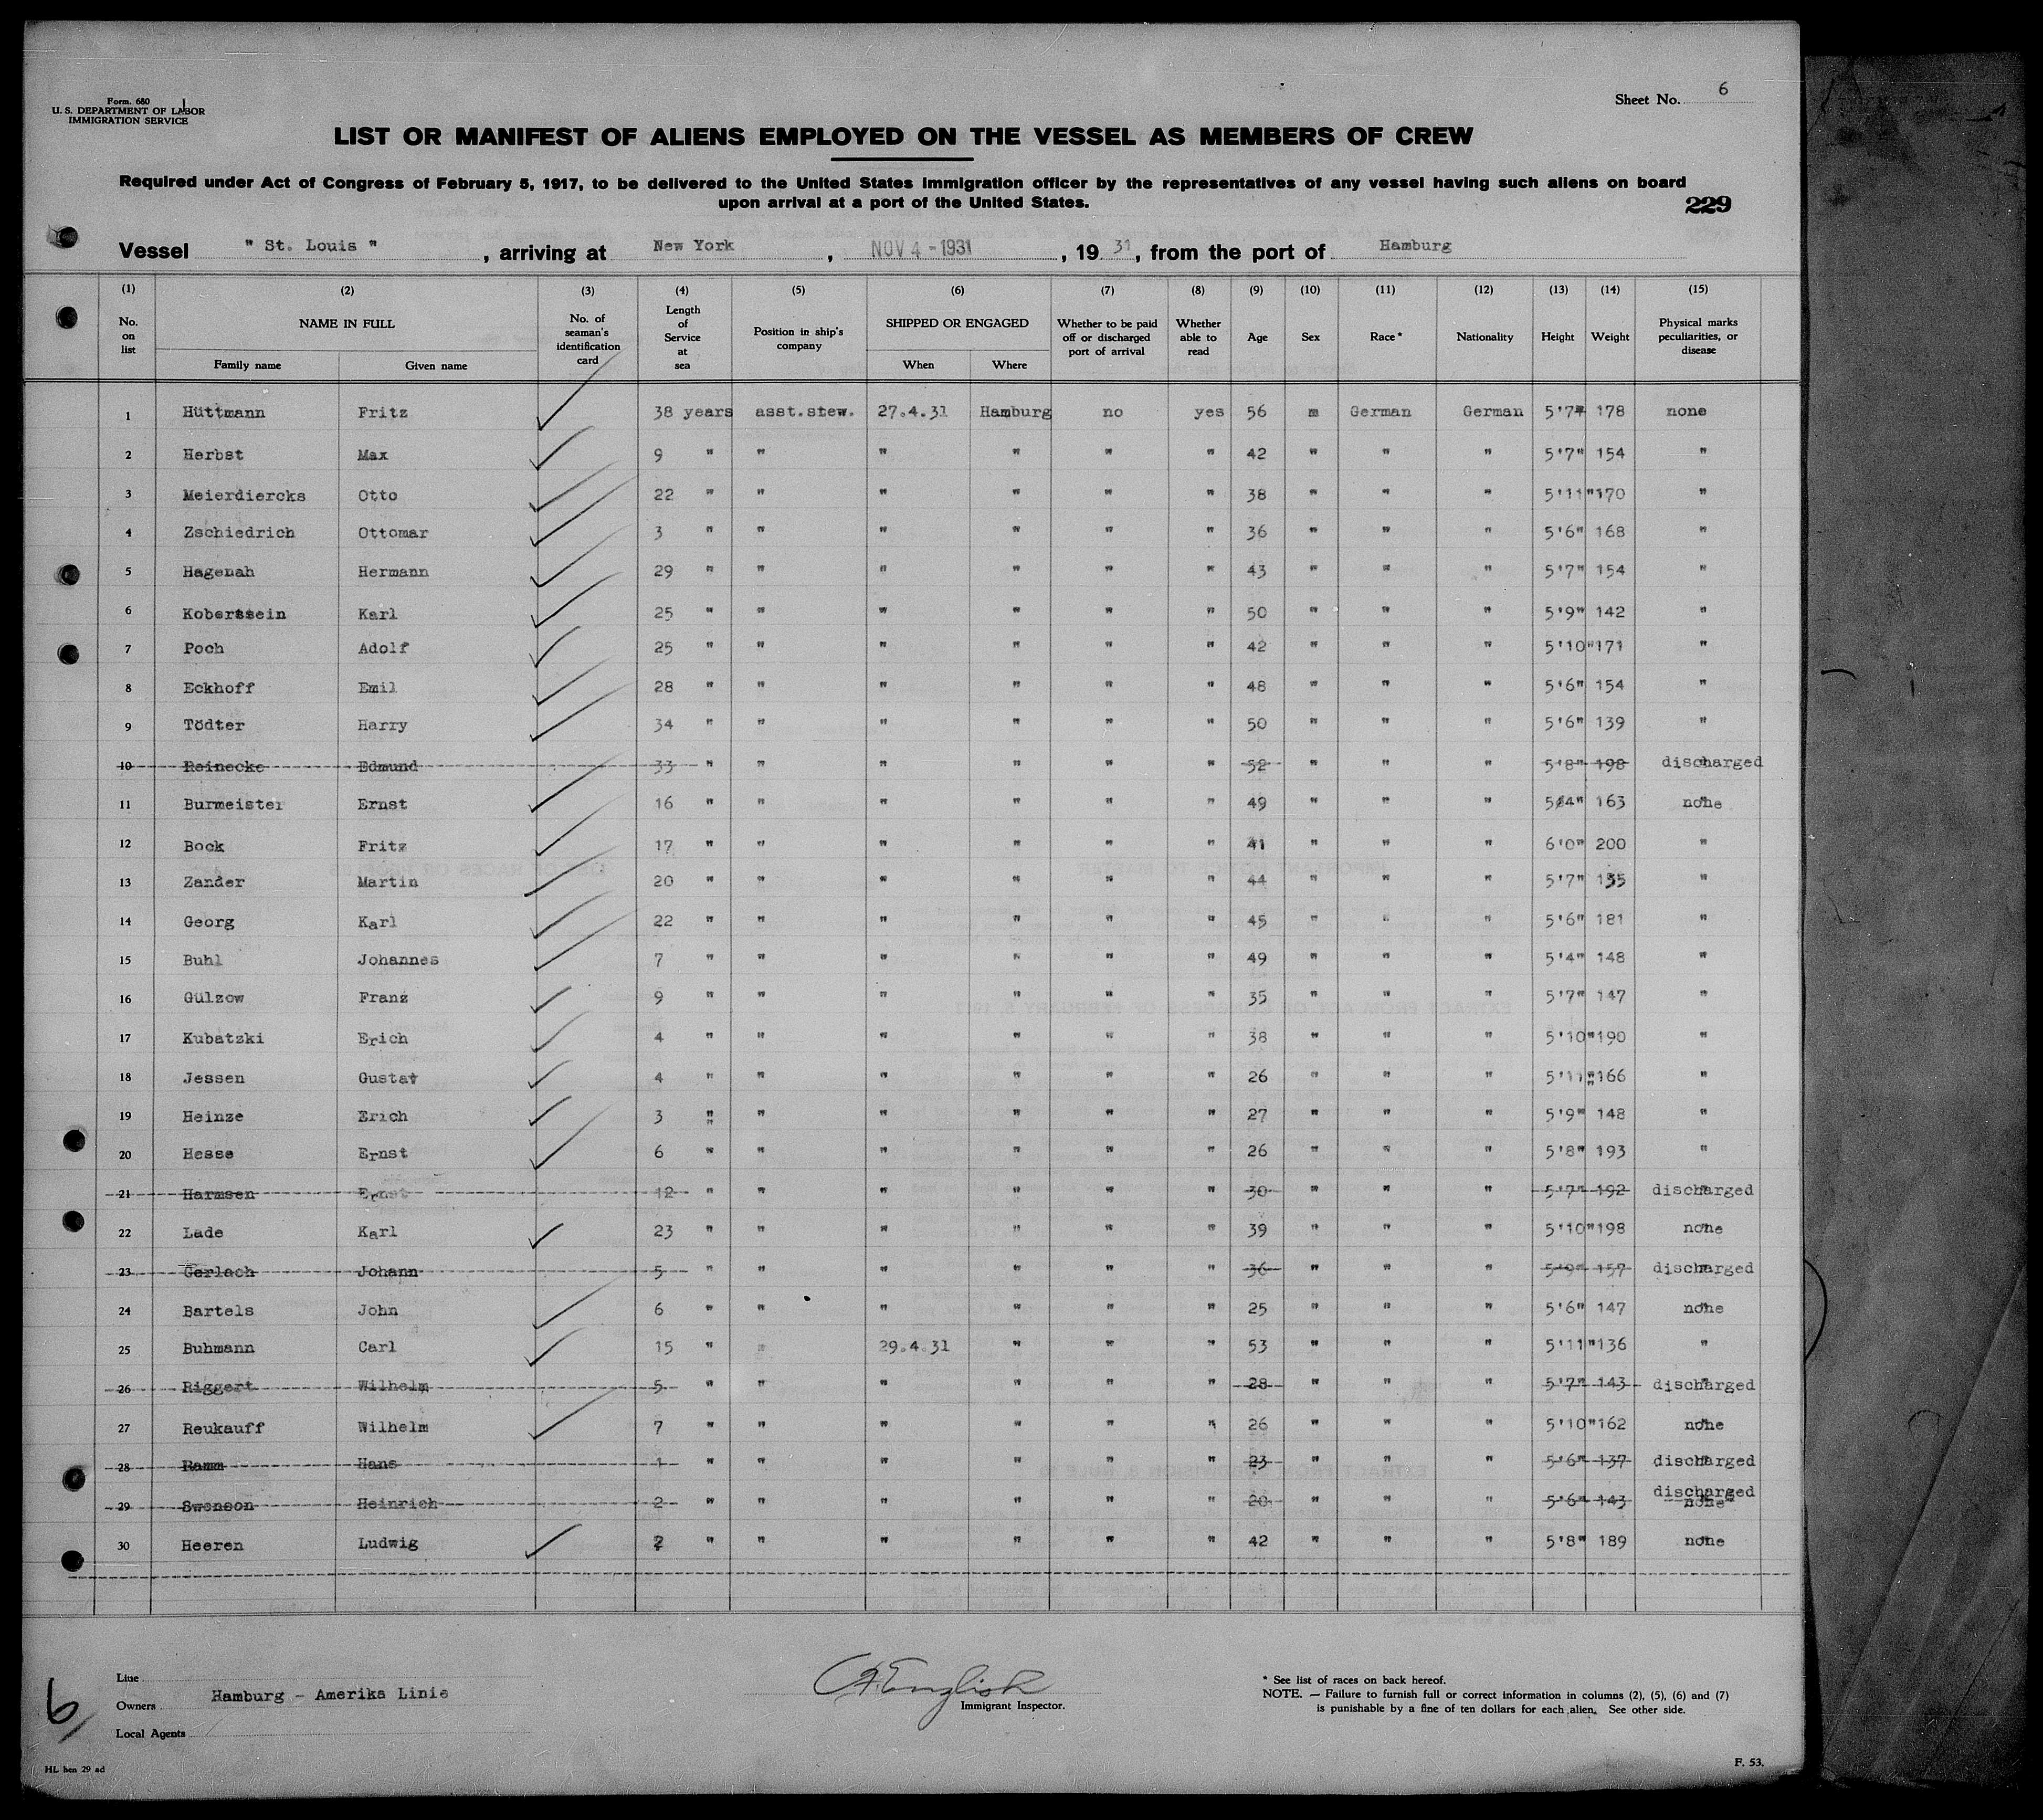 Form. 680
U. S. DEPARTMENT OF LABOR
IMMIGRATION SERVICE
Sheet No. 6
LIST OR MANIFEST OF ALIENS EMPLOYED ON THE VESSEL AS MEMBERS OF CREW
Required under Act of Congress of February 5, 1917, to be delivered to the United States Immigration officer by the representatives of any vessel having such aliens on board
upon arrival at a port of the United States.
229
Vessel " St. Louis " , arriving at New York , NOV 4 - 1931 , 19 31 , from the port of Hamburg
(1) (2) (3) (4) (5) (6) (7) (8) (9) (10) (11) (12) (13) (14) (15)
No. on list NAME IN FULL Family name Given name No. of seaman's identification card Length of Service at sea Position in ship's company SHIPPED OR ENGAGED When Where Whether to be paid off or discharged port of arrival Whether able to read Age Sex Race * Nationality Height Weight Physical marks peculiarities, or disease
1 Hüttmann Fritz 38 years asst.stew. 27.4.31 Hamburg no yes 56 m German German 5'7" 178 none
2 Herbst Max 9 " " " " " " 42 " " " 5'7" 154 "
3 Meierdiercks Otto 22 " " " " " " 38 " " " 5'11" 170 "
4 Zschiedrich Ottomar 3 " " " " " " 36 " " " 5'6" 168 "
5 Hagenah Hermann 29 " " " " " " 43 " " " 5'7" 154 "
6 Koberstein Karl 25 " " " " " " 50 " " " 5'9" 142 "
7 Poch Adolf 25 " " " " " " 42 " " " 5'10" 171 "
8 Eckhoff Emil 28 " " " " " " 48 " " " 5'6" 154 "
9 Tödter Harry 34 " " " " " " 50 " " " 5'6" 139 "
10 Reinecke Edmund 33 " " " " " " 52 " " " 5'8" 198 discharged
11 Burmeister Ernst 16 " " " " " " 49 " " " 5'4" 163 none
12 Bock Fritz 17 " " " " " " 41 " " " 6'0" 200 "
13 Zander Martin 20 " " " " " " 44 " " " 5'7" 135 "
14 Georg Karl 22 " " " " " " 45 " " " 5'6" 181 "
15 Buhl Johannes 7 " " " " " " 49 " " " 5'4" 148 "
16 Gülzow Franz 9 " " " " " " 35 " " " 5'7" 147 "
17 Kubatzki Erich 4 " " " " " " 38 " " " 5'10" 190 "
18 Jessen Gustav 4 " " " " " " 26 " " " 5'11" 166 "
19 Heinze Erich 3 " " " " " " 27 " " " 5'9" 148 "
20 Hesse Ernst 6 " " " " " " 26 " " " 5'8" 193 "
21 Harmsen Ernst 12 " " " " " " 30 " " " 5'7" 192 discharged
22 Lade Karl 23 " " " " " " 39 " " " 5'10" 198 none
23 Gerlach Johann 5 " " " " " " 36 " " " 5'9" 157 discharged
24 Bartels John 6 " " " " " " 25 " " " 5'6" 147 none
25 Buhmann Carl 15 " " 29.4.31 " " " 53 " " " 5'11" 136 "
26 Riggert Wilhelm 5 " " " " " " 28 " " " 5'7" 143 discharged
27 Reukauff Wilhelm 7 " " " " " " 26 " " " 5'10" 162 none
28 Ramm Hans 1 " " " " " " 23 " " " 5'6" 137 discharged
29 Swenson Heinrich 2 " " " " " " 20 " " " 5'6" 143 discharged none
30 Heeren Ludwig 2 " " " " " " 42 " " " 5'8" 189 none
Line
Owners Hamburg - Amerika Linie
Local Agents
6
English
Immigrant Inspector.
* See list of races on back hereof.
NOTE. — Failure to furnish full or correct information in columns (2), (5), (6) and (7)
is punishable by a fine of ten dollars for each alien. See other side.
HL hen 29 ad
F. 53.